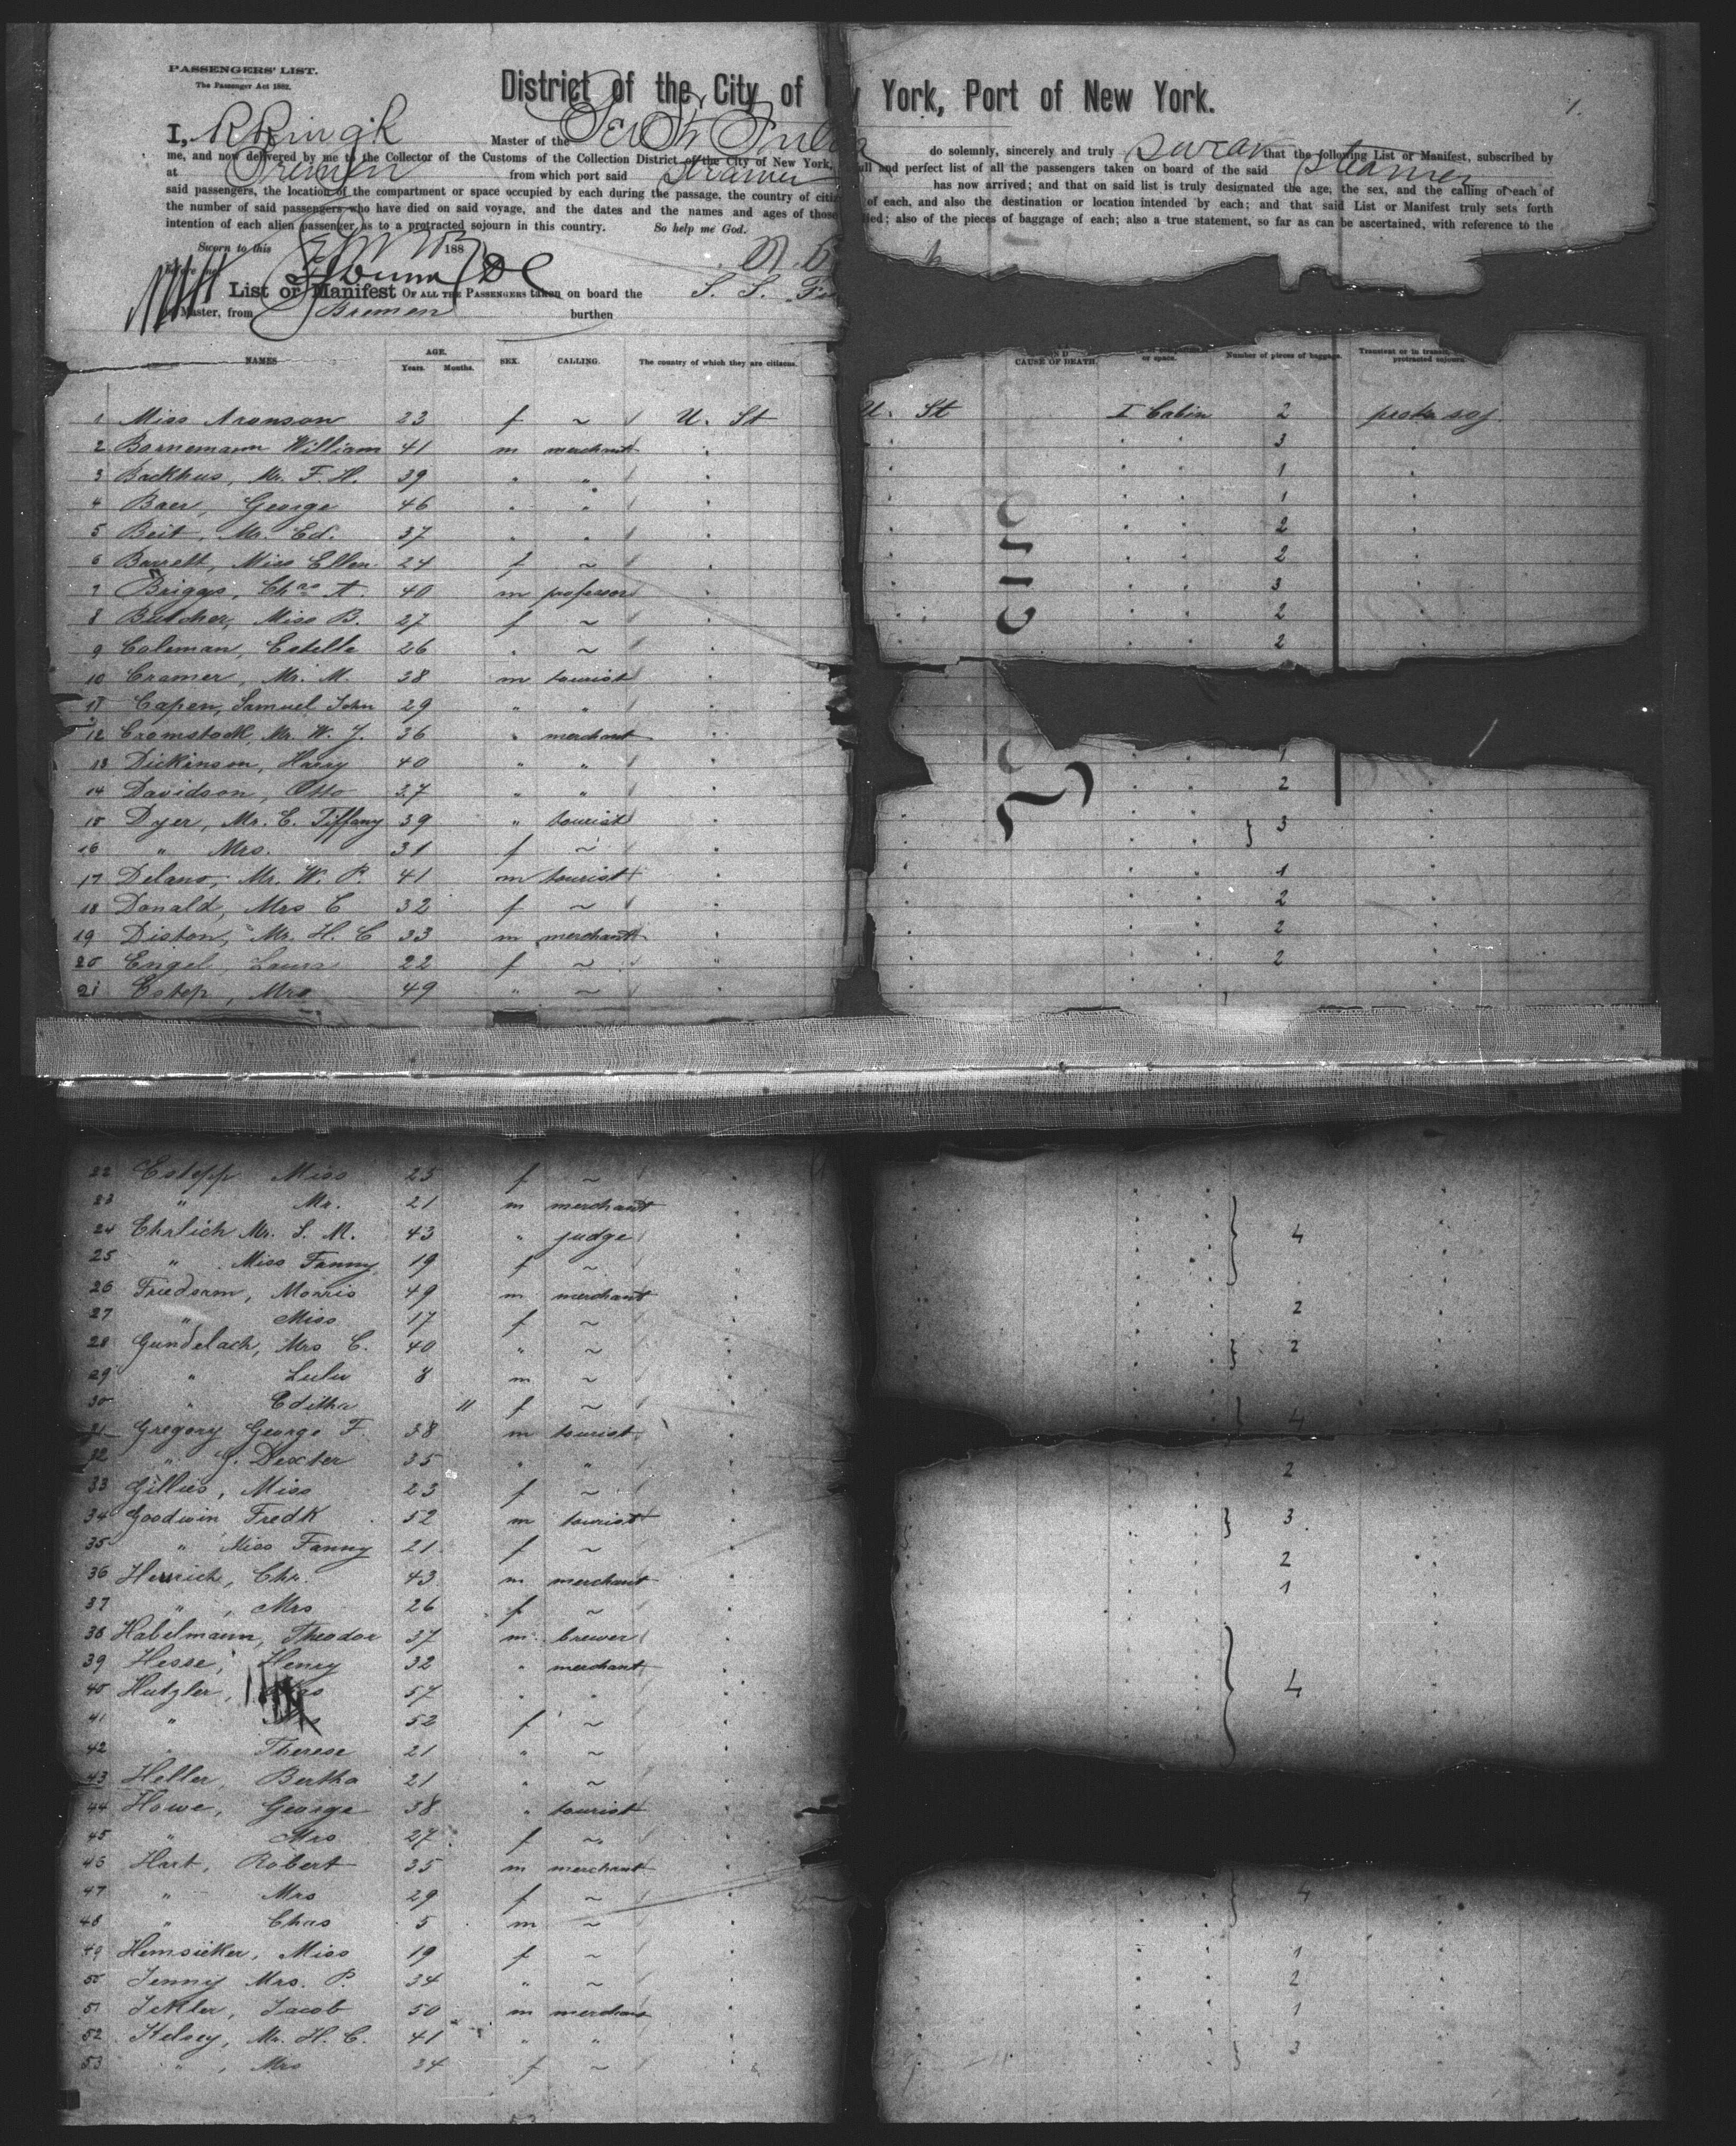 PASSENGERS' LIST.
The Passenger Act 1882.
District of the City of York, Port of New York.
1.
I, R Ringk Master of the do solemnly, sincerely and truly swear that the following List or Manifest, subscribed by
me, and now delivered by me to the Collector of the Customs of the Collection District of the City of New York, full and perfect list of all the passengers taken on board of the said steamer
at Bremen from which port said steamer has now arrived; and that on said list is truly designated the age, the sex, and the calling of each of
said passengers, the location of the compartment or space occupied by each during the passage, the country of of each, and also the destination or location intended by each; and that said List or Manifest truly sets forth
the number of said passengers who have died on said voyage, and the dates and the names and ages of those died; also of the pieces of baggage of each; also a true statement, so far as can be ascertained, with reference to the
intention of each alien passenger as to a protracted sojourn in this country. So help me God.
Sworn to this 188
List or Manifest OF ALL THE PASSENGERS taken on board the S. S.
Master, from Bremen burthen
NAMES AGE. Years. Months. SEX. CALLING. The country of which they are citizens. CAUSE OF DEATH. or space. Number of pieces of baggage. Transient or in transit, protracted sojourn.
1 Miss Aronson 23 f ~ U. St U. St I Cabin 2 protr soj.
2 Bornemann William 41 m merchant 3
3 Backhus, Mr. F. H. 39 " " 1
4 Baer, George 46 " " 1
5 Beit, Mr. Ed. 37 " " 2
6 Barrett, Miss Ellen 24 f ~ 2
7 Briggs, Chas A. 40 m professor 3
8 Butcher, Miss B. 27 f ~ 2
9 Coleman, Estelle 26 " ~ 2
10 Cramer, Mr. M. 38 m tourist
11 Capen, Samuel John 29 " "
12 Cromstock, Mr. W. J. 36 " merchant
13 Dickinson, Harry 40 " " 1
14 Davidson, Otto 37 " " 2
15 Dyer, Mr. C. Tiffany 39 " tourist } 3
16 " Mrs. 31 f ~
17 Delano, Mr. W. P. 41 m tourist 1
18 Donald, Mrs C 32 f ~ 2
19 Diston, Mr. H. C 33 m merchant 2
20 Engel, Laura 22 f ~ 2
21 Estep, Mrs 49 " ~
22 Estepp Miss 25 f ~
23 " Mr. 21 m merchant
24 Ehrlich Mr. S. M. 43 " judge } 4
25 " Miss Fanny 19 f ~
26 Friedsam, Morris 49 m merchant
27 " Miss 17 f ~ 2
28 Gundelach, Mrs C. 40 " ~ } 2
29 " Lulu 8 m ~
30 " Editha 11 f ~ } 4
31 Gregory George F. 38 m tourist
32 " G. Dexter 35 " " 2
33 Gillies, Miss 23 f ~
34 Goodwin Fredk 52 m tourist } 3
35 " Miss Fanny 21 f ~ 2
36 Henrich, Chr. 43 m merchant 1
37 " , Mrs 26 f ~
38 Habelmann, Theodor 37 m brewer
39 Hesse, Henry 32 " merchant
40 Hutzler, 57 " " } 4
41 " 52 f ~
42 " Therese 21 " ~
43 Heller, Bertha 21 " ~
44 Howe, George 38 " tourist
45 " Mrs 27 f ~
46 Hart, Robert 35 m merchant
47 " Mrs 29 f ~ } 4
48 " Chas 5 m ~
49 Hemsicker, Miss 19 f ~ 1
50 Jenny Mrs. P. 34 " ~ 2
51 Jekler, Jacob 50 m merchant 1
52 Kelsey, Mr. H. C. 41 " " } 3
53 " , Mrs 34 f ~